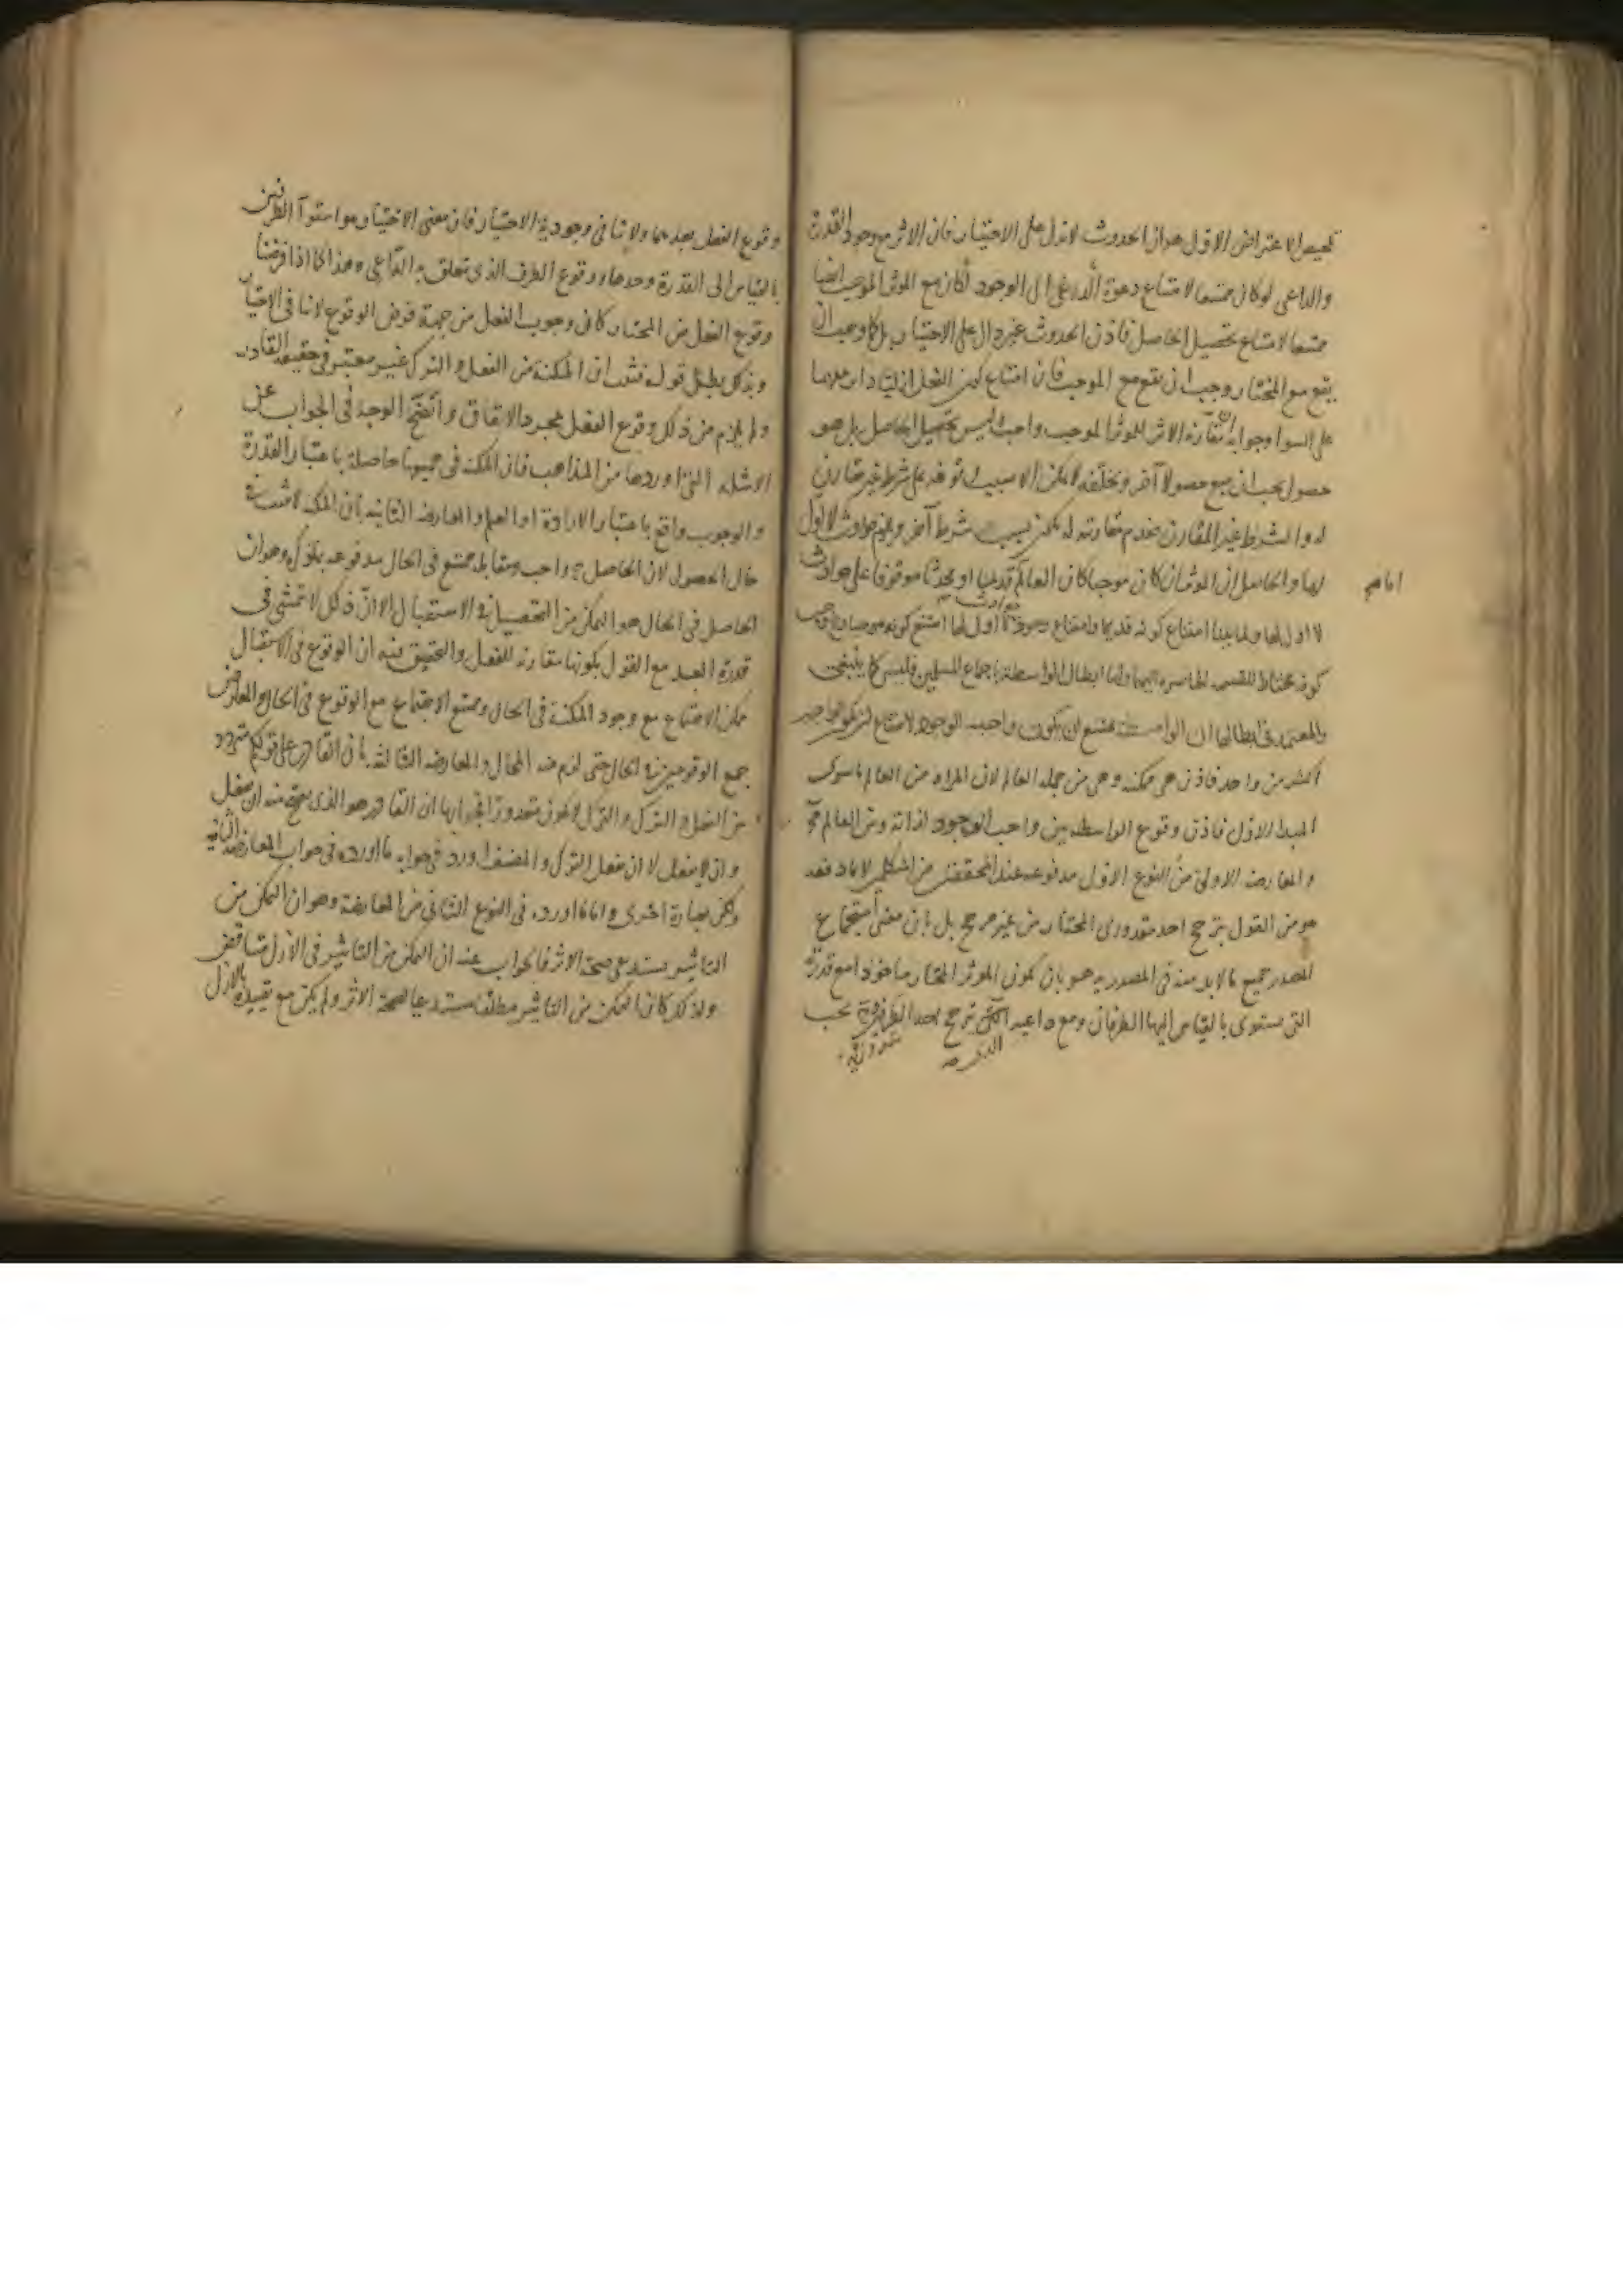 تلخيص الاعتراض الاول هو ان الحدوث لا تدل على الاختيار فان الاثر مع وجود القدرة
والداعى لو كان ممتنعا لامتناع دعوة الداعى الى الوجود لكان مع المؤثر الموجب ايضا
ممتنعا لامتناع تحصيل الحاصل فاذن الحدوث غير دال على الاختيار بل كما وجب ان
يقع مع المختار وجب ان يقع مع الموجب فان امتناع كون الفعل
على السوا وجوابه ان مقارنة الاثر للمؤثر الموجب واجب وليس تحصيل الحاصل بل هو
حصول يجب ان يتبع حصولا آخر وتخلفه لا يمكن الا بسبب توقفه على شرط غير مقارن
له والشرط غير المقارن عدم مقارنته له يكون بسبب شرط آخر ويلزم حوادث لا اول
لها والحاصل ان المؤثر ان كان موجبا كان العالم قديما او محدثا موقوفا على حوادث
امام
لا اول لها ولما بينا امتناع كونه قديما وامتناع وجود حوادث لا اول لها امتنع كونه موجبا ووجب
كونه مختارا للقسمة الحاصرة اليهما واما ابطال الواسطة باجماع المسلمين فليس كما ينبغى
والمعتمد فى ابطالها ان الواسطة يمتنع ان يكون واجب الوجود لامتناع ان يكون الواجب
اكثر من واحد فاذن هى ممكنة وهى من جملة العالم لان المراد من العالم ما سوى
المبدا الاول فاذن وقوع الواسطة بين واجب الوجود لذاته وبين العالم مح
والمعارضة الاولى من النوع الاول مدفوعة عند المحققين من المتكلمين لا بما دفعه
هو من القول بترجح احد مقدورى المختار من غير مرجح بل بان معنى استجماع
المصدر جميع ما لا بد منه فى المصدرية هو بان يكون المؤثر المختار ماخوذا مع قدرته
التى يستوى بالقياس اليها الطرفان ومع داعيه الذى ترجح احد الطرفين يجب
وقوع الفعل بعدهما ولا ينافى وجوبه الاختيار فان معنى الاختيار هو استوآ الطرفين
بالقياس الى القدرة وحدها ووقوع الطرف الذى يتعلق به الداعى وهذا كما اذا فرضنا
وقوع الفعل من المختار كان وجوب الفعل من جهة فرض الوقوع لا ينافى الاختيار
وبذلك بطل قوله فثبت ان المكنة من الفعل والترك غير معتبر فى حقيقة القادر
ولم يلزم من ذلك وقوع الفعل بمجرد الاتفاق واتضح الوجه فى الجواب عن
الامثلة التى اوردها من المذاهب فان المكنة فى جميعها حاصلة باعتبار القدرة
والوجوب واقع باعتبار الارادة او العلم والمعارضة الثانية بان المكنة لا تثبت
حال الحصول لان الحاصل واجب ومقابله ممتنع فى الحال مدفوعة بما ذكره وهو ان
الحاصل فى الحال هو التمكن من التحصيل فى الاستقبال الا ان ذلك لا يتمشى فى
قدرة العبد مع القول بكونها مقارنة للفعل والتحقيق فيه ان الوقوع فى الاستقبال
ممكن الاجتماع مع وجود المكنة فى الحال وممتنع الاجتماع مع الوقوع فى الحال والمعارض
جمع الوقوعين فى الحال حتى لزم منه المحال والمعارضة الثالثة بان القادر على قولكم متردد
بين الفعل والترك والترك لا يكون مقدورا فجوابها ان القادر هو الذى يصح منه ان يفعل
وان لا يفعل لا ان يفعل الترك والمصنف اورد فى جوابه ما اورده فى جواب المعارضة الثانية
ولكن بعبارة اخرى واما ما اورده فى النوع الثانى من المعارضة وهو ان التمكن من
التاثير يستدعى صحة الاثر فالجواب عنه ان التمكن من التاثير فى الازل متناقض
ولذلك كان التمكن من التاثير مطلقا مستدعيا لصحة الاثر ولم يكن مع تقييده بالازل